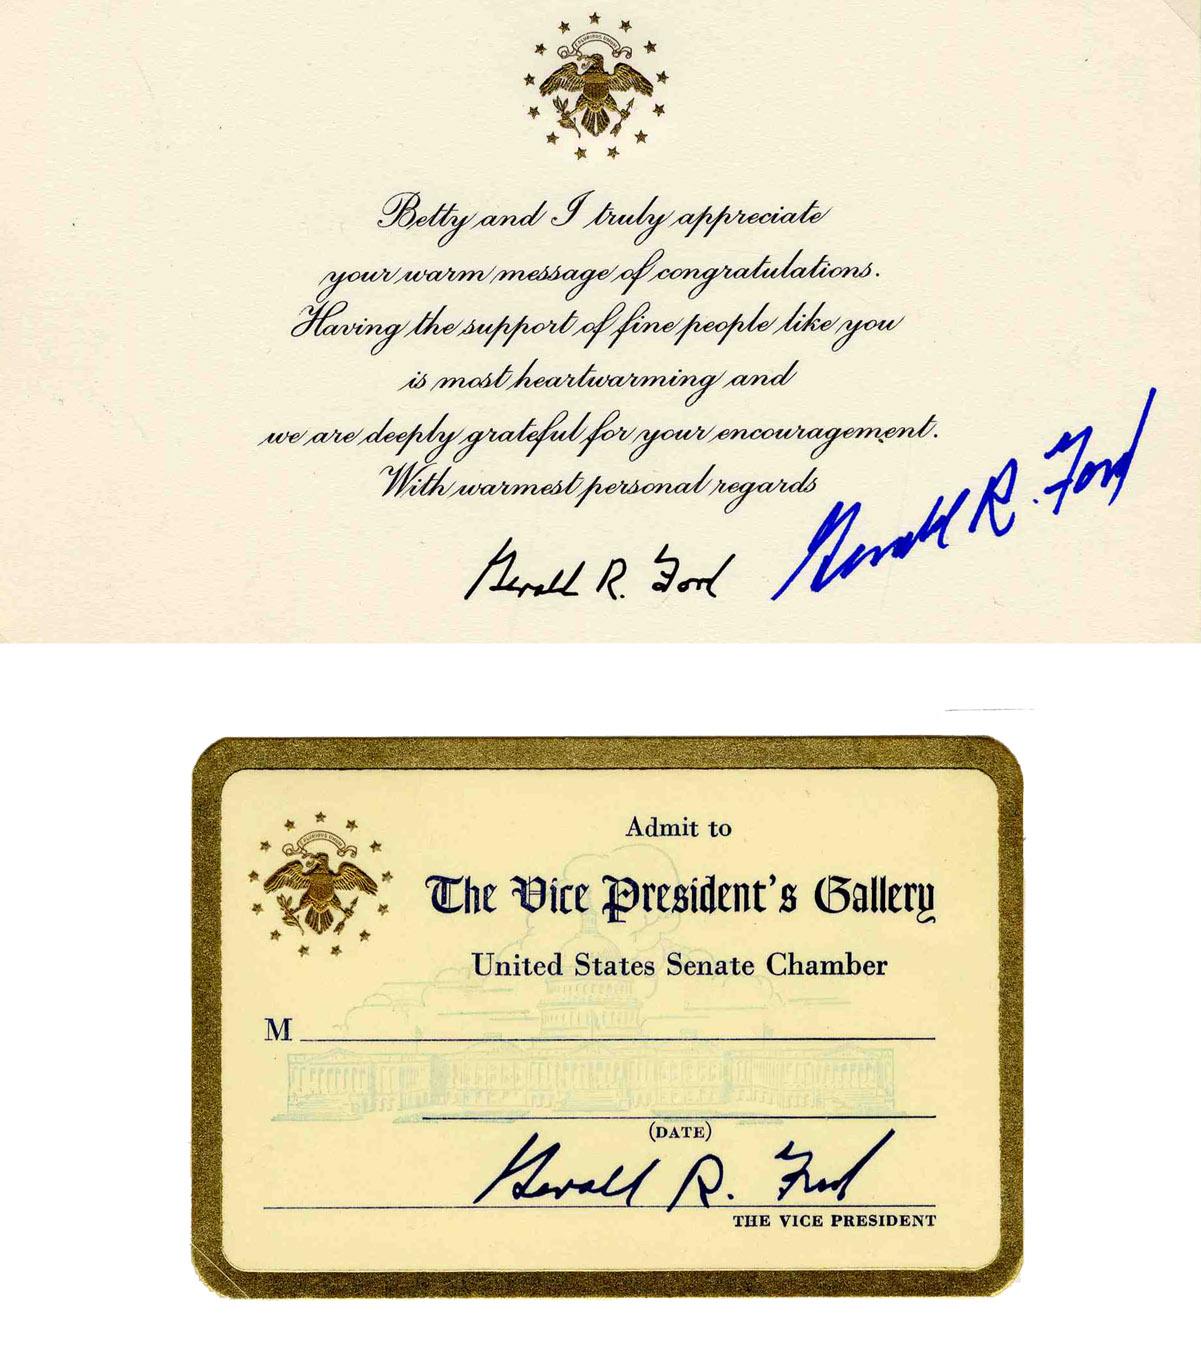 E PLURIBUS UNUM
Betty and I truly appreciate
your warm message of congratulations.
Having the support of fine people like you
is most heartwarming and
we are deeply grateful for your encouragement.
With warmest personal regards
Gerald R. Ford
Gerald R. Ford
E PLURIBUS UNUM
Admit to
The Vice President's Gallery
United States Senate Chamber
M
(DATE)
Gerald R. Ford
THE VICE PRESIDENT